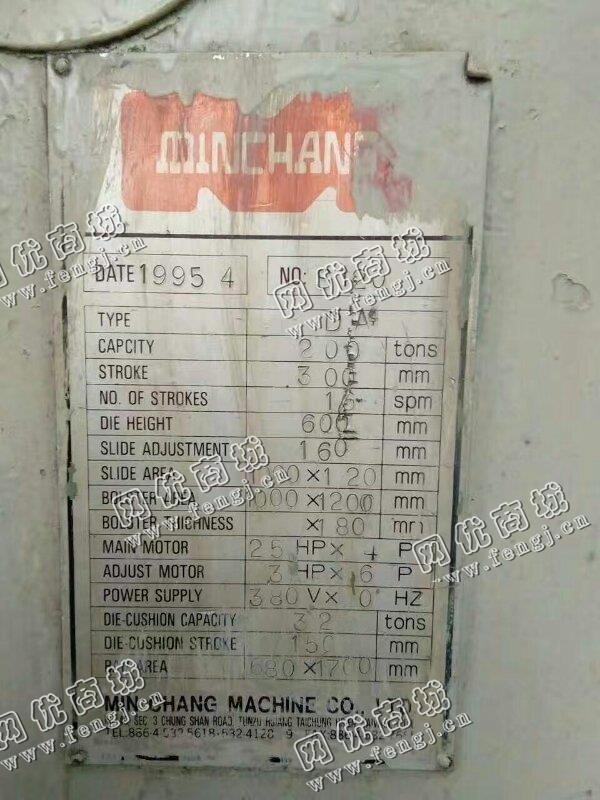 MINCHANG
DATE 1995 4 NO:
TYPE
CAPCITY 200 tons
STROKE 300 mm
NO. OF STROKES spm
DIE HEIGHT 600 mm
SLIDE ADJUSTMENT 160 mm
SLIDE AREA mm
BOLSTER AREA ×1200 mm
BOLSTER THICHNESS ×180 mm
MAIN MOTOR 25 HP× 4 P
ADJUST MOTOR 3 HP×6 P
POWER SUPPLY 380 V× HZ
DIE-CUSHION CAPACITY 32 tons
DIE-CUSHION STROKE 150 mm
PAD AREA 680×1700 mm
MIN CHANG MACHINE CO., LTD
SEC 3 CHUNG SHAN ROAD, TUNZU HSIANG TAICHUNG
TEL:886-4
网优商城
www.fengj.cn
网优商城
www.fengj.cn
网优商城
www.fengj.cn
网优商城
www.fengj.cn
网优商城
www.fengj.cn